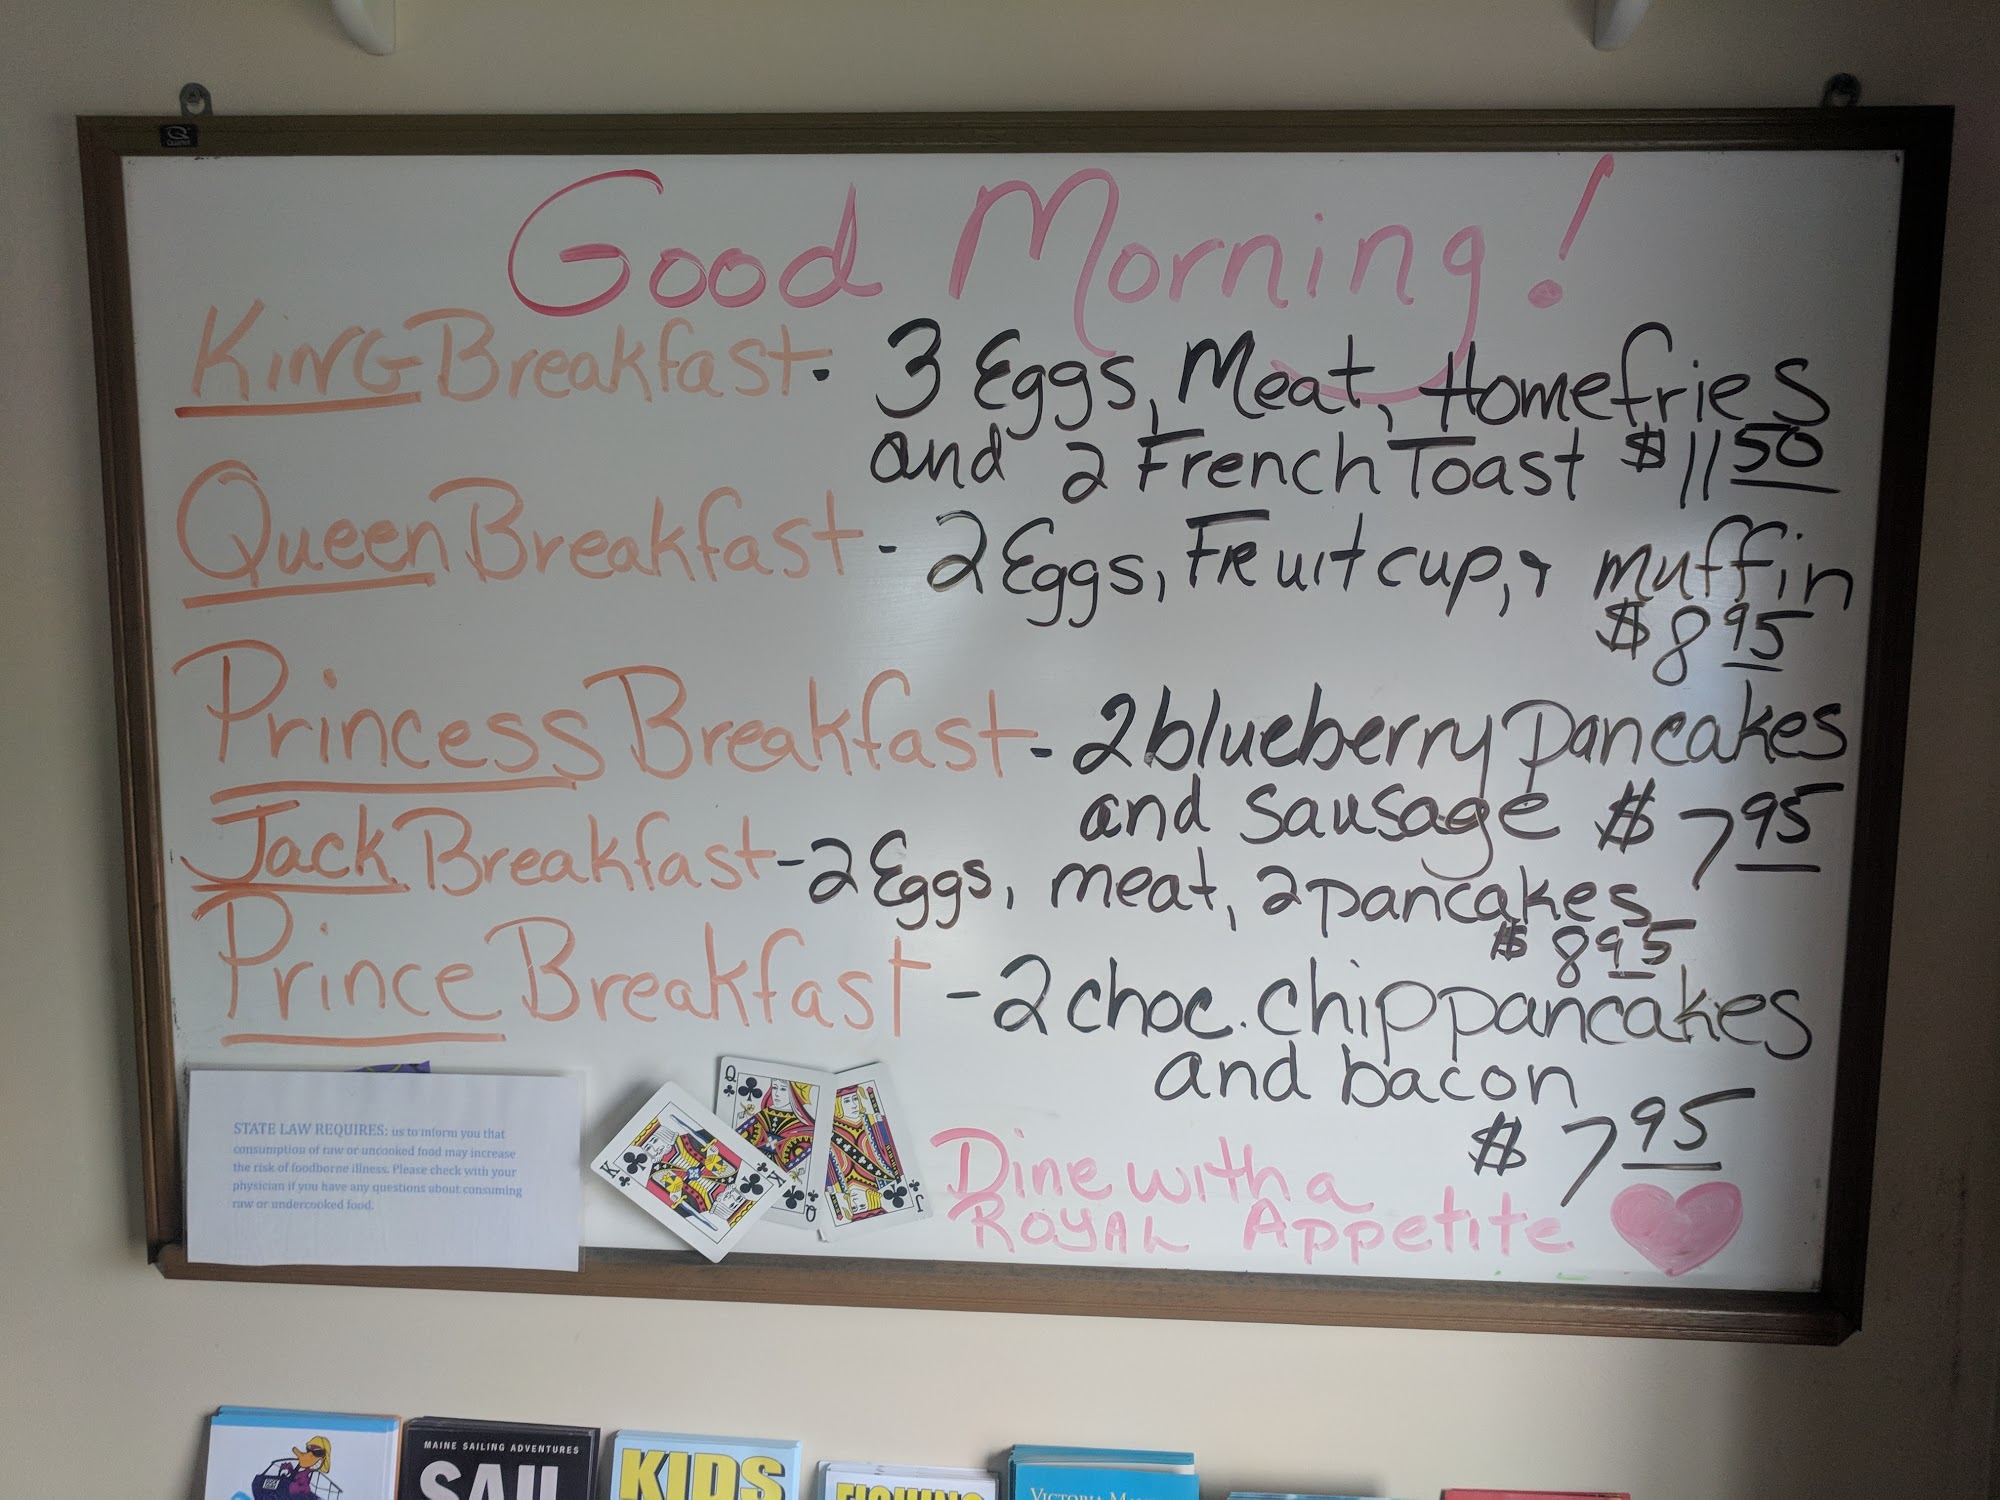 Quartet
Good Morning!
KING Breakfast - 3 Eggs, Meat, Homefries
and 2 French Toast $11 50
Queen Breakfast - 2 Eggs, FRuit cup, & muffin
$8 95
Princess Breakfast - 2 blueberry pancakes
and sausage $7 95
Jack Breakfast - 2 Eggs, meat, 2 pancakes
$8 95
Prince Breakfast - 2 choc. chip pancakes
and bacon
$7 95
STATE LAW REQUIRES: us to inform you that
consumption of raw or uncooked food may increase
the risk of foodborne illness. Please check with your
physician if you have any questions about consuming
raw or undercooked food.
K
K
Q
Q
J
Dine with a
ROYAL Appetite
MAINE SAILING ADVENTURES
SAIL
KIDS
FISHING
VICTORIA